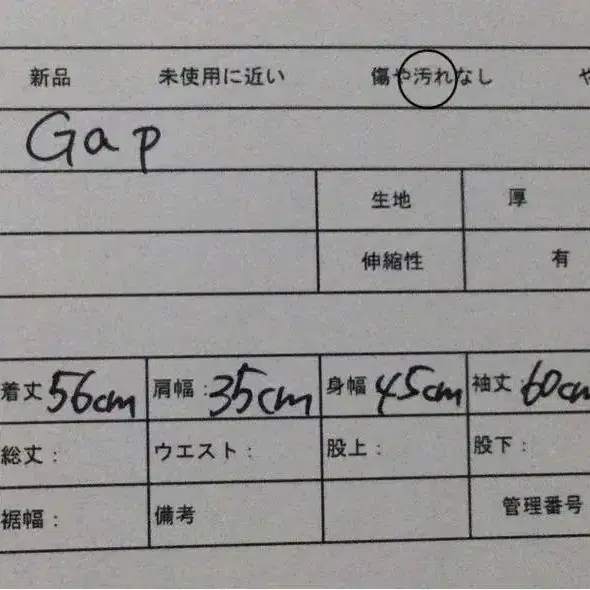 新品 未使用に近い 傷や汚れなし や
Gap
生地 厚
伸縮性 有
着丈 56cm 肩幅: 35cm 身幅 45cm 袖丈 60cm
総丈: ウエスト: 股上: 股下:
裾幅: 備考 管理番号